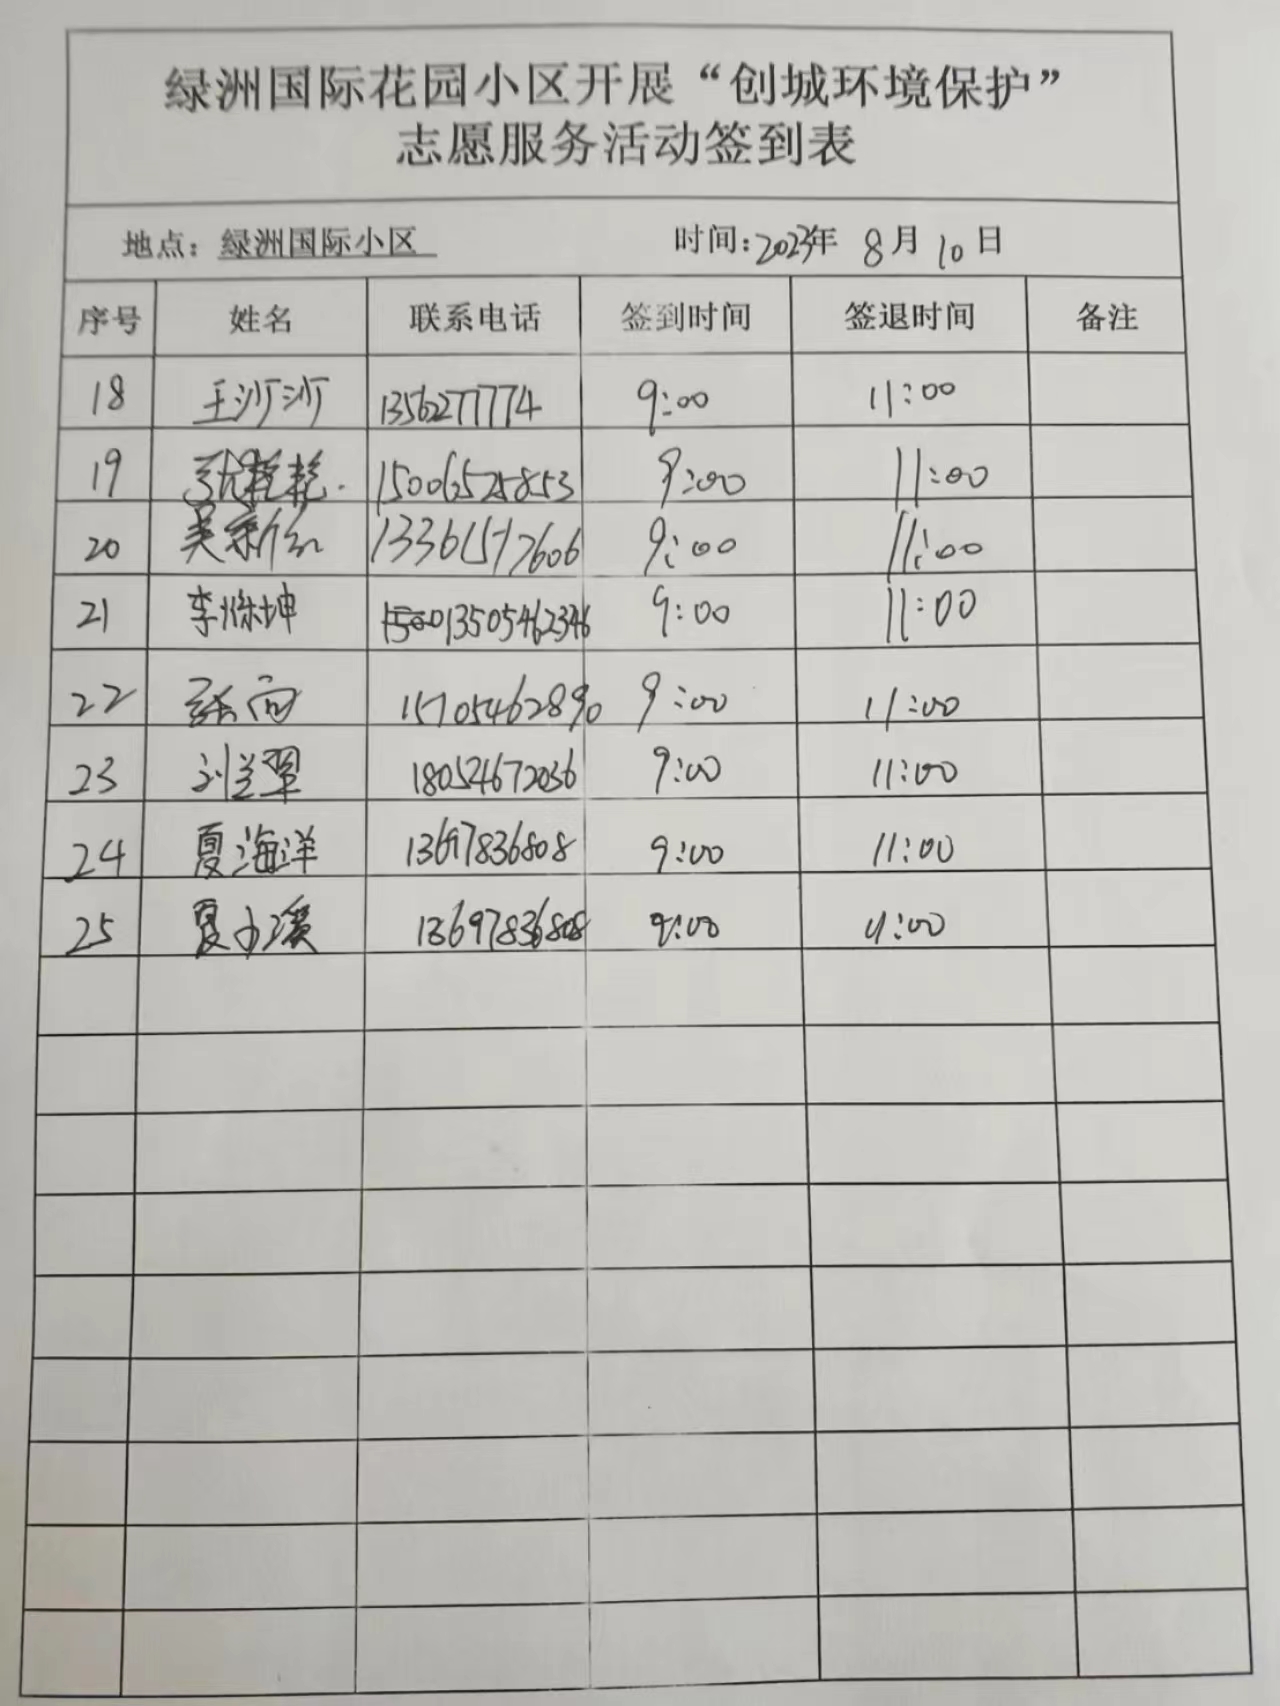 绿洲国际花园小区开展“创城环境保护”
志愿服务活动签到表
地点：绿洲国际小区 时间：2023年 8月 10日
序号 姓名 联系电话 签到时间 签退时间 备注
18 王沙沙 13562277774 9:00 11:00
19 15006525853 9:00 11:00
20 吴新红 13361517606 9:00 11:00
21 李 坤 13505462346 9:00 11:00
22 张向 15705462890 9:00 11:00
23 刘兰翠 18054672036 9:00 11:00
24 夏海洋 13697836808 9:00 11:00
25 夏小溪 13697836808 9:00 11:00